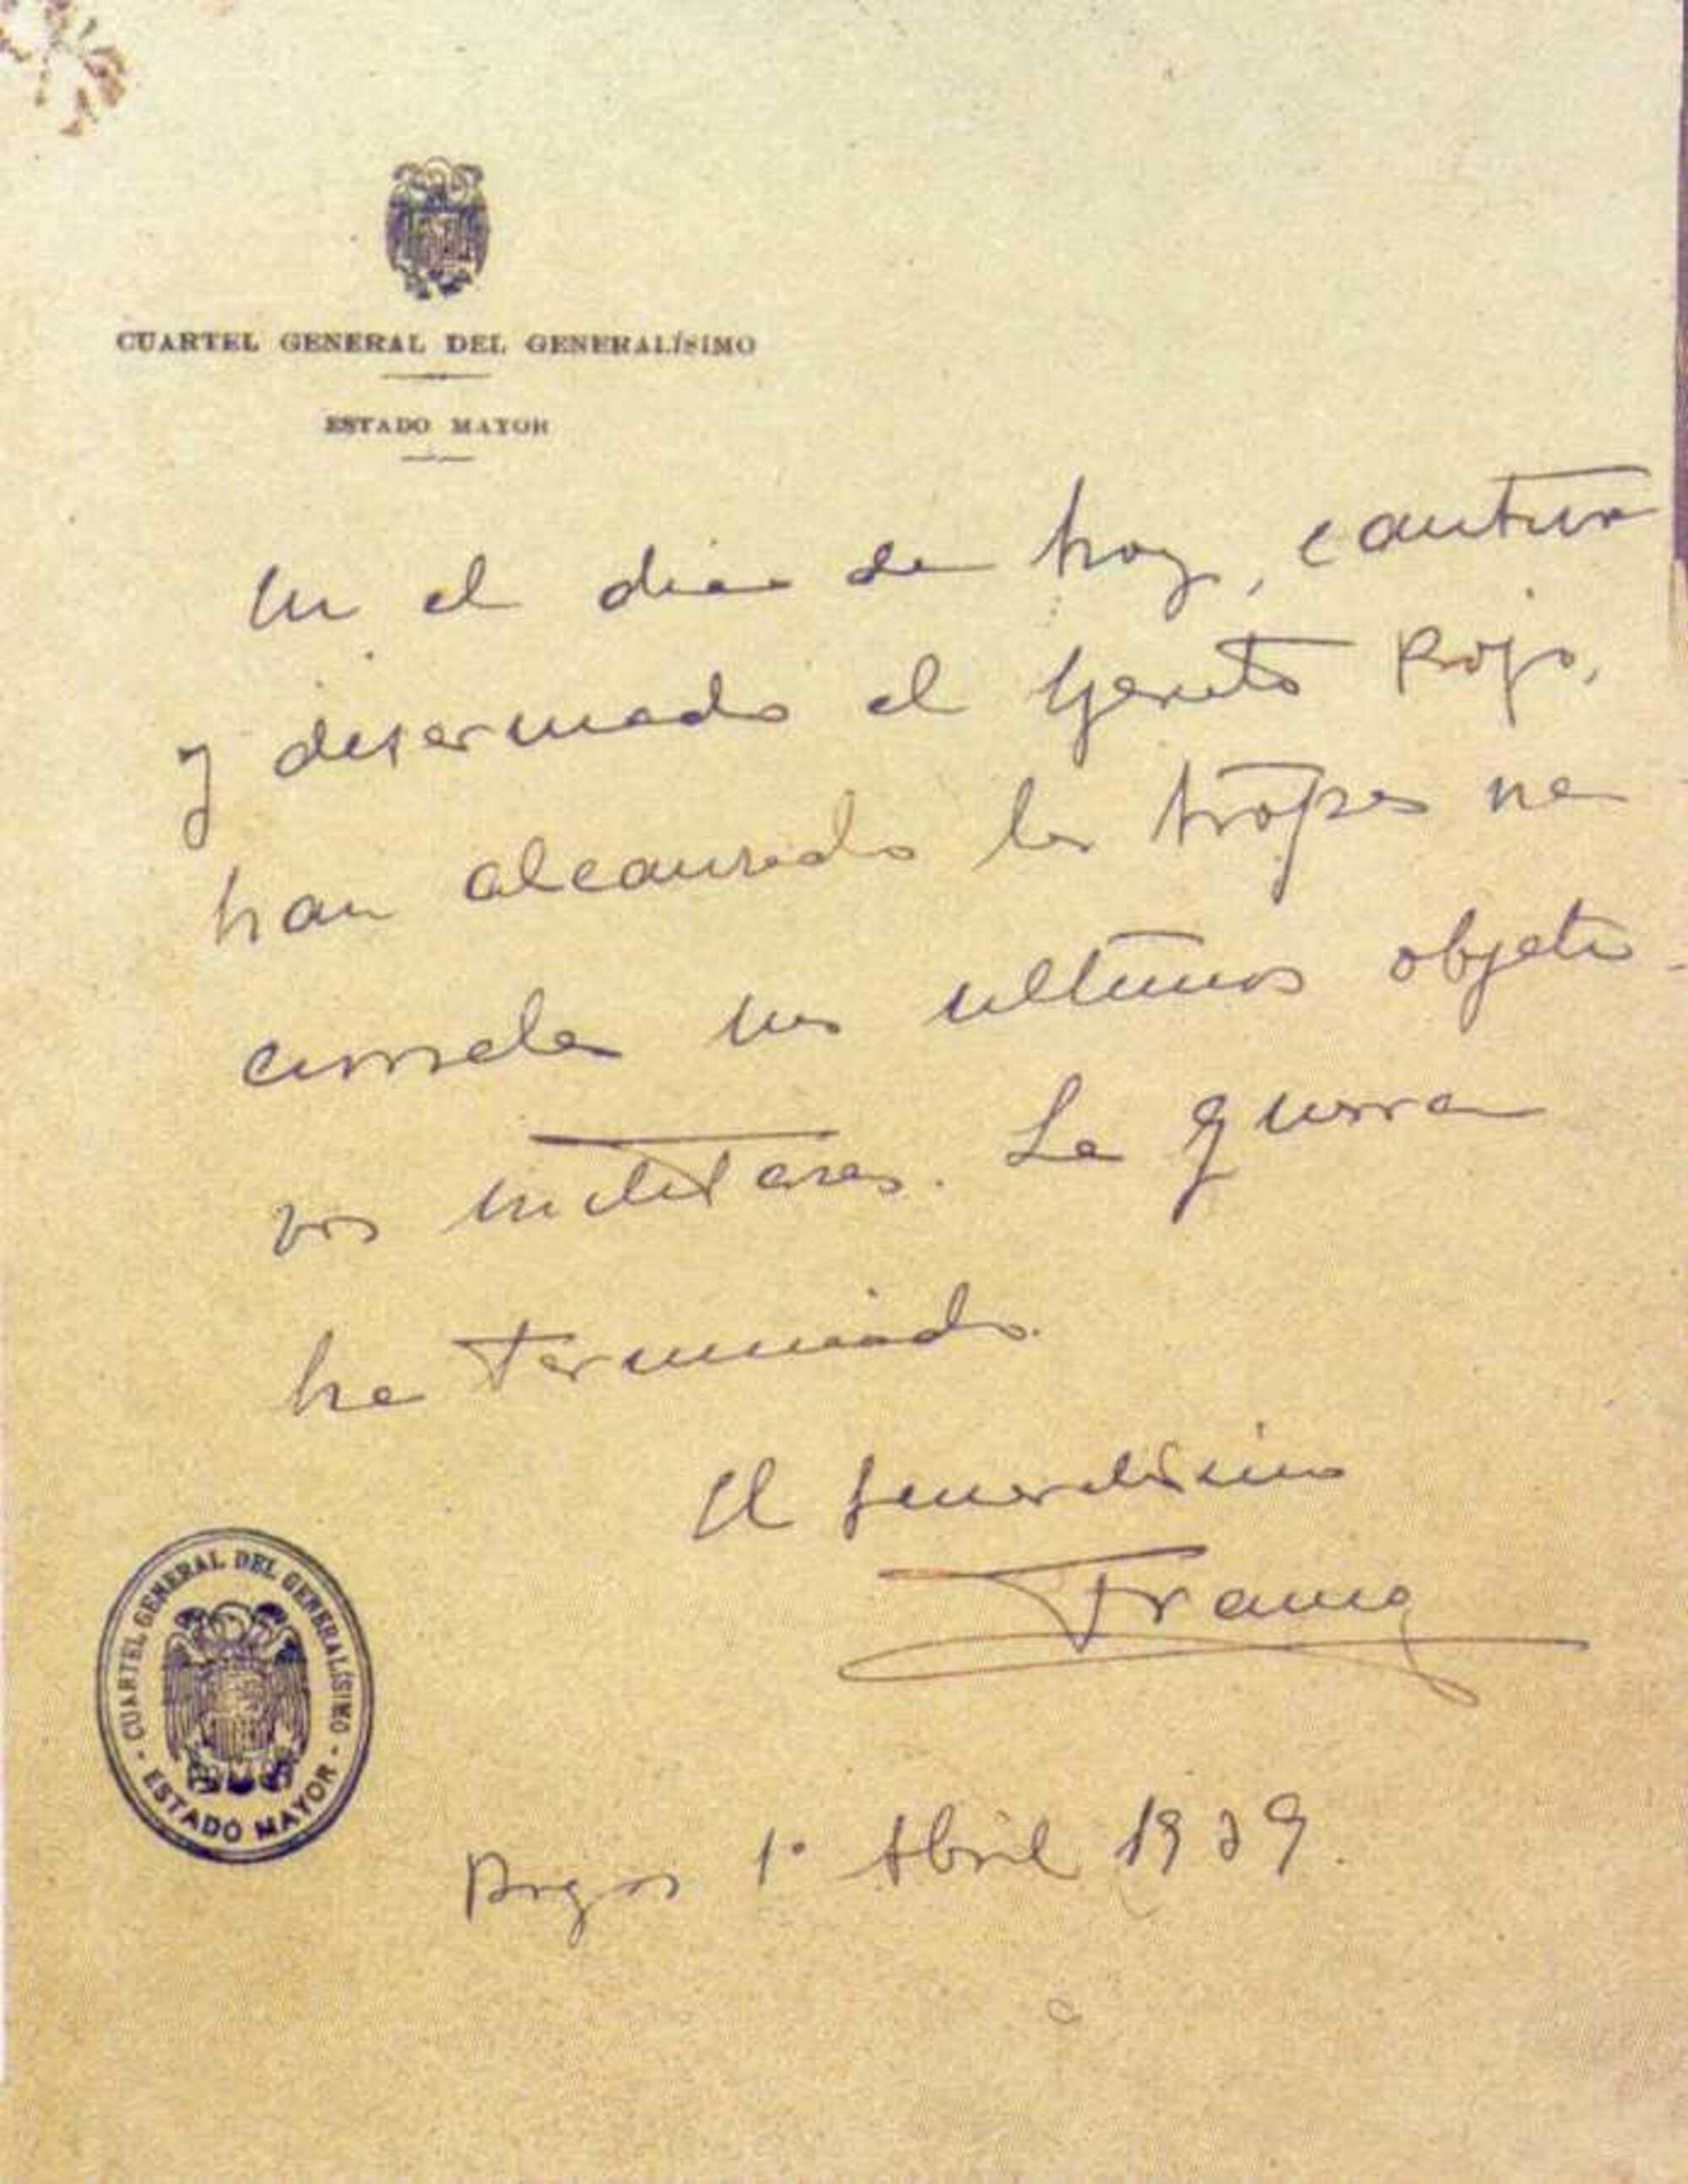 CUARTEL GENERAL DEL GENERALÍSIMO
ESTADO MAYOR
En el dia de hoy, cautivo
y desarmado el Ejercito Rojo,
han alcanzado las tropas na
cionales sus ultimos objeti-
vos militares. La guerra
ha terminado.
El Generalísimo
Franco
CUARTEL GENERAL DEL GENERALÍSIMO
- ESTADO MAYOR -
Burgos 1º Abril 1939.